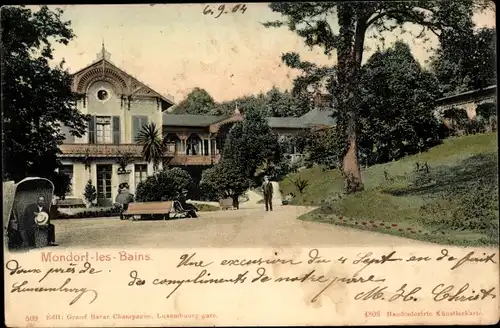 6.9.04
Mondorf-les-Bains.
Une excursion du 4 Sept en a fait
Doux près de des compliments de notre part.
Luxembourg M. H. Christ
509 Edit: Grand Bazar Champagne, Luxembourg-gare. 4895 Handcolorirte Künstlerkarte.